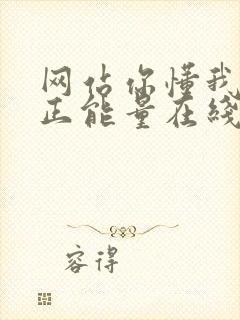 网站你懂我
正能量在线
容得